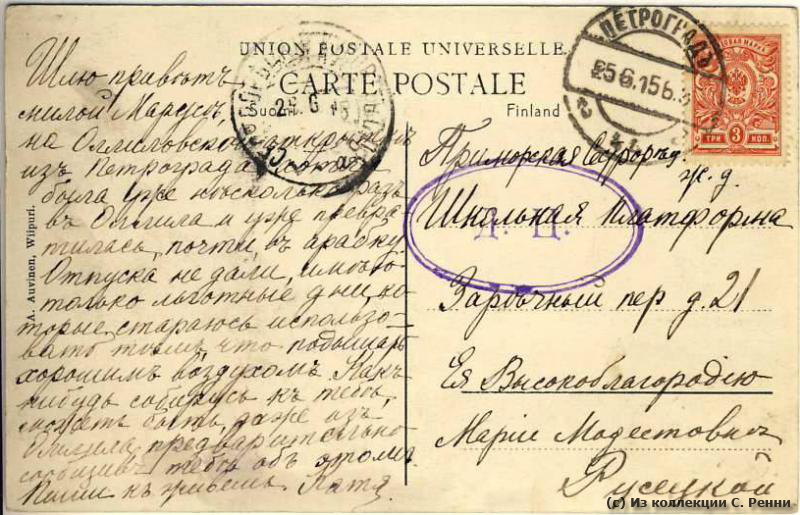 UNION POSTALE UNIVERSELLE.
CARTE POSTALE
Suomi. Finland
ПЕТРОГРАДЪ
25 6.15 6.
25. 6 15
3 ТРИ КОП. 3
A. Auvinen, Wiipuri.
Шлю привѣтъ
милой Марусѣ,
на Оллиловской открыткѣ
изъ Петрограда,
была уже нѣсколько разъ
въ Оллила и уже превра
тилась, почти, въ арабку.
Отпуска не дали, имѣю
только льготные дни, ко
торые, стараюсь использо-
вать тѣмъ, что подышать
хорошимъ воздухомъ. Какъ
нибудь соберусь къ тебѣ,
можетъ быть даже изъ
Оллила, предварительно
сообщивъ тебѣ объ этомъ.
Пиши какъ живешь. Катя.
Приморская ж. д.
Школьная Платформа
Заръчный пер д. 21
Ея Высокоблагородію
Маріи Модестовнѣ
Русецкой
(c) Из коллекции С. Ренни